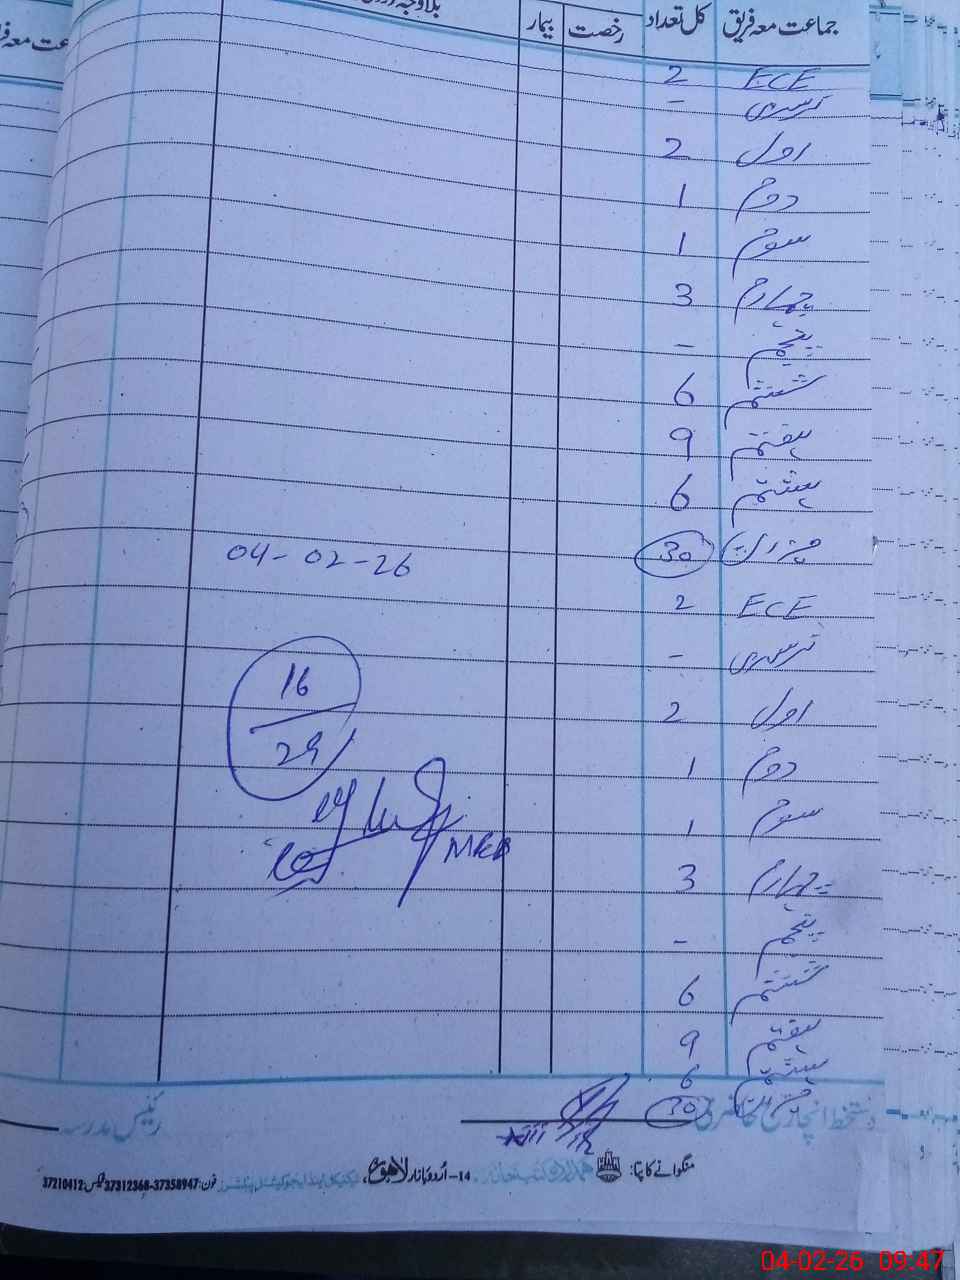 جماعت معہ فریق کل تعداد رخصت بیمار
ECE 2
نرسری -
اول 2
دوم 1
سوم 1
چہارم 3
پنجم -
ششم 6
ہفتم 9
ہشتم 6
میزان 30
04-02-26
ECE 2
نرسری -
اول 2
16
29
دوم 1
سوم 1
چہارم 3
پنجم -
ششم 6
ہفتم 9
ہشتم 6
میزان 30
دستخط انچارج حاضری
رئیس مدرسہ
منگوانے کا پتا:
14-اُردو بازار لاہور
فون: 37358947-37312368 فیکس: 37210412
04-02-26 09:47